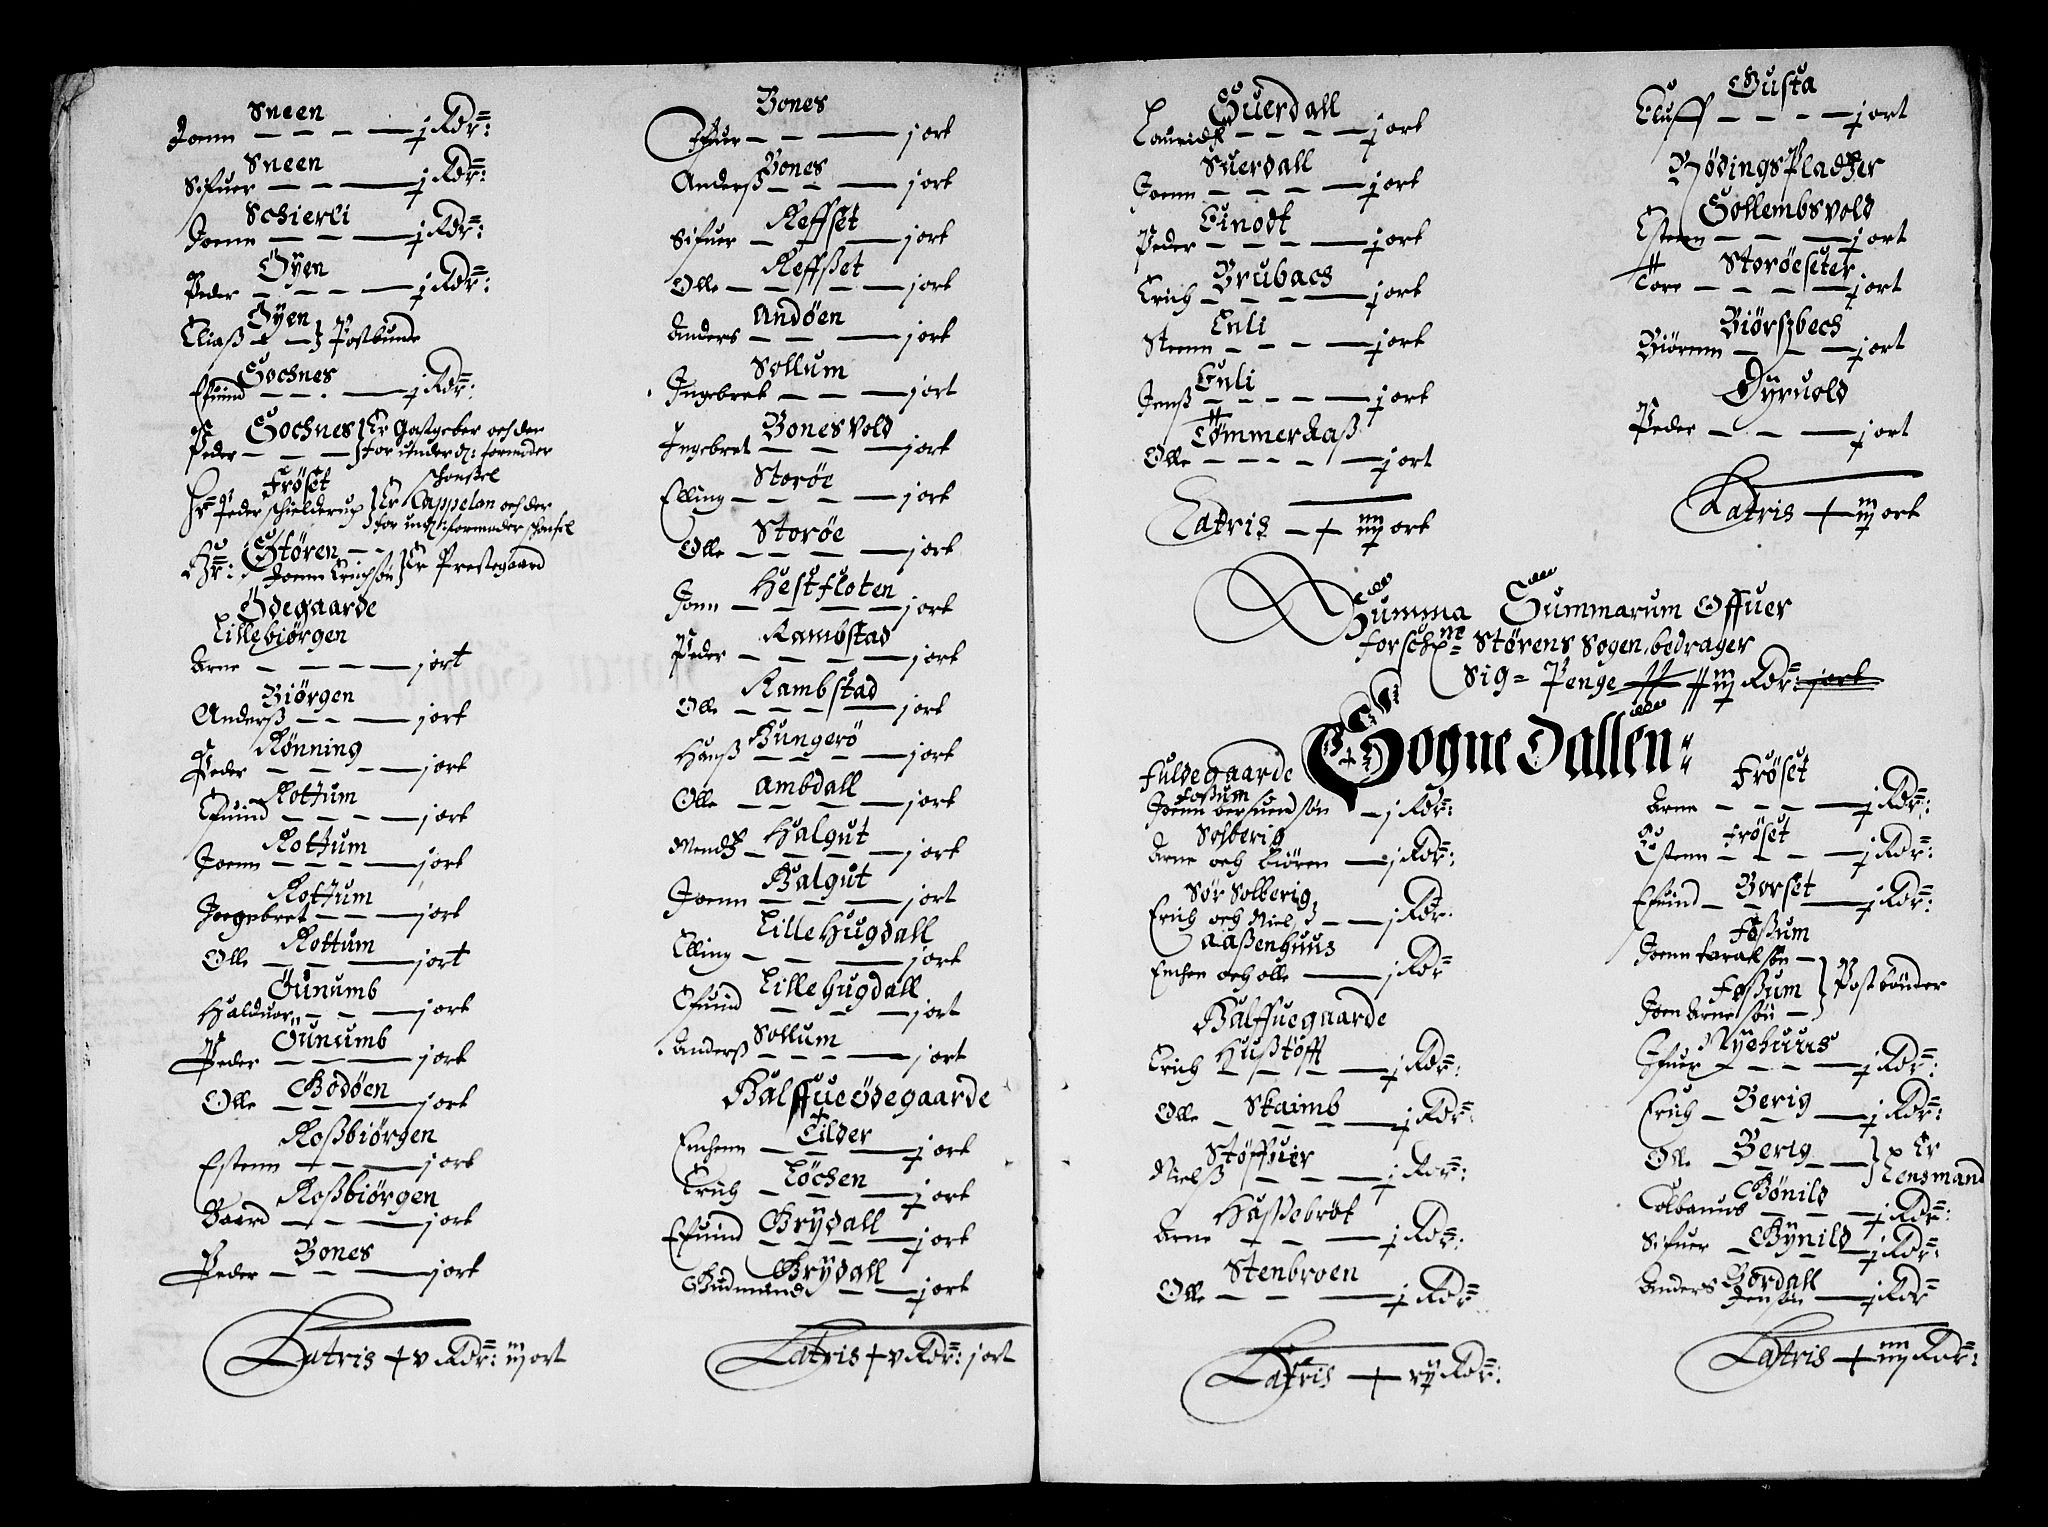 Sneen
Joenn — — — — j Rdr:
Sneen
Sifuer — — — j Rdr:
Schierli
Joenn — — — j Rdr:
Öyen
Peder — — — — j Rdr:
Öyen
Eliaß — — } Postbunde
Sochnes
Efuind — — . — j Rdr:
Sochnes } Er Gastgeber och der
Peder — — — } for under dz: formeder
Fröset schonßel
Hr Peder schielderup } Er Cappelan och der
for und: formeder schonsel
Hr: Stören — —
Joenn Erichsön } Er Prestegaard
Ödegaarde
Lillebiörgen
Arne — — — — jort
Biörgen
Anderß — — — jort
Rönning
Peder — — — — jort
Rottum
Efuind — — — — jort
Rottum
Joenn — — — — jort
Rottum
Ingebret — — — jort
Rottum
Olle — — — — jort
Öunumb
Halduor — — — jort
Öunumb
Peder — — — — jort
Bodöen
Olle — — — — jort
Roßbiörgen
Estenn — — — jort
Roßbiörgen
Baard — — — jort
Bones
Peder — — — jort
Latris + v Rdr: iij ort
Bones
Effuer — — — jort
Bones
Anderß — — — jort
Reffset
Sifuer — — — jort
Reffßet
Olle — — — — jort
Andöen
Anders — — — — jort
Sollum
Ingebret — — — jort
Bonesvold
Ingebret — — — jort
Storöe
Elling — — — — jort
Storöe
Olle — — — — jort
Hestfloten
Jonn — — — — jort
Rambstad
Peder — — — — jort
Rambstad
Olle — — — — jort
Bungerö
Hanß — — — — jort
Ambdall
Olle — — — — jort
Halgut
Mendß — — — — jort
Balgut
Joenn — — — jort
Lille Hugdall
Elling — — — — jort
Lille hugdall
Efuind — — — jort
Sollum
Anderß — — — — jort
Halffueödegaarde
Eilder
Enchenn — — — j ort
Löchen
Erich — — — j ort
Brÿdall
Efuind — — — — j ort
Brÿdall
Gudmund — — j ort
Latris + v Rdr: j ort
Suerdall
Lauridß — — — — j ort
Suerdall
Joenn — — — — j ort
Einodt
Peder — — — — j ort
Brubach
Erich — — — — j ort
Enli
Steenn — — — — j ort
Enli
Jenß — — — — — j ort
Tömmeraaß
Olle — — — — — j ort
Latris — + iiij ort
Gusta
Eluff — — — j ort
Rödings Pladtzer
Sollembsvold
Estenn — — — j ort
Storöeseter
Tore — — — — j ort
Biörßbech
Biörenn — — — j ort
Öÿruold
Peder — — — j ort
Latris + iij ort
Summa Summarum Offuer
forschne Störens Sogen, bedrager
Sig= Penge iij Rdr: jort
Sogne Dallen:
Fuldegaarde
Foßum
Joenn Versuendsön — j Rdr:
Solberig
Arne och biören — j Rdr:
Sör Solberig
Erich och Niels — — j Rdr:
Aaßenhuus
Enchen och olle — j Rdr
Halffuegaarde
Hußtöfft
Erich — — — — j Rdr:
Skaimb
Olle — — — — j Rdr:
Stöffuer
Nielß — — — j Rdr:
Haßebröt
Arne — — — j Rdr:
Stenbroen
Olle — — — — j Rdr
Latris — + Rdr:
Fröset
Arne — — — — j Rdr:
Fröset
Estenn — — — j Rdr:
Borset
Efuind — — — j Rdr:
Foßum
Joenn taraldsön —
Foßum } Postbönder
Joen Arnesön —
Nÿehuus
Ifuer — — — — j Rdr:
Berig
Erich — — — j Rdr:
Berig } Er
Olle — — — } Lensmand
Bönild
Colbanus — — — j Rdr:
Bÿnild
Sifuer — — — j Rdr:
Bordall
Anders Jensön — j Rdr
Latris + iiij Rdr: